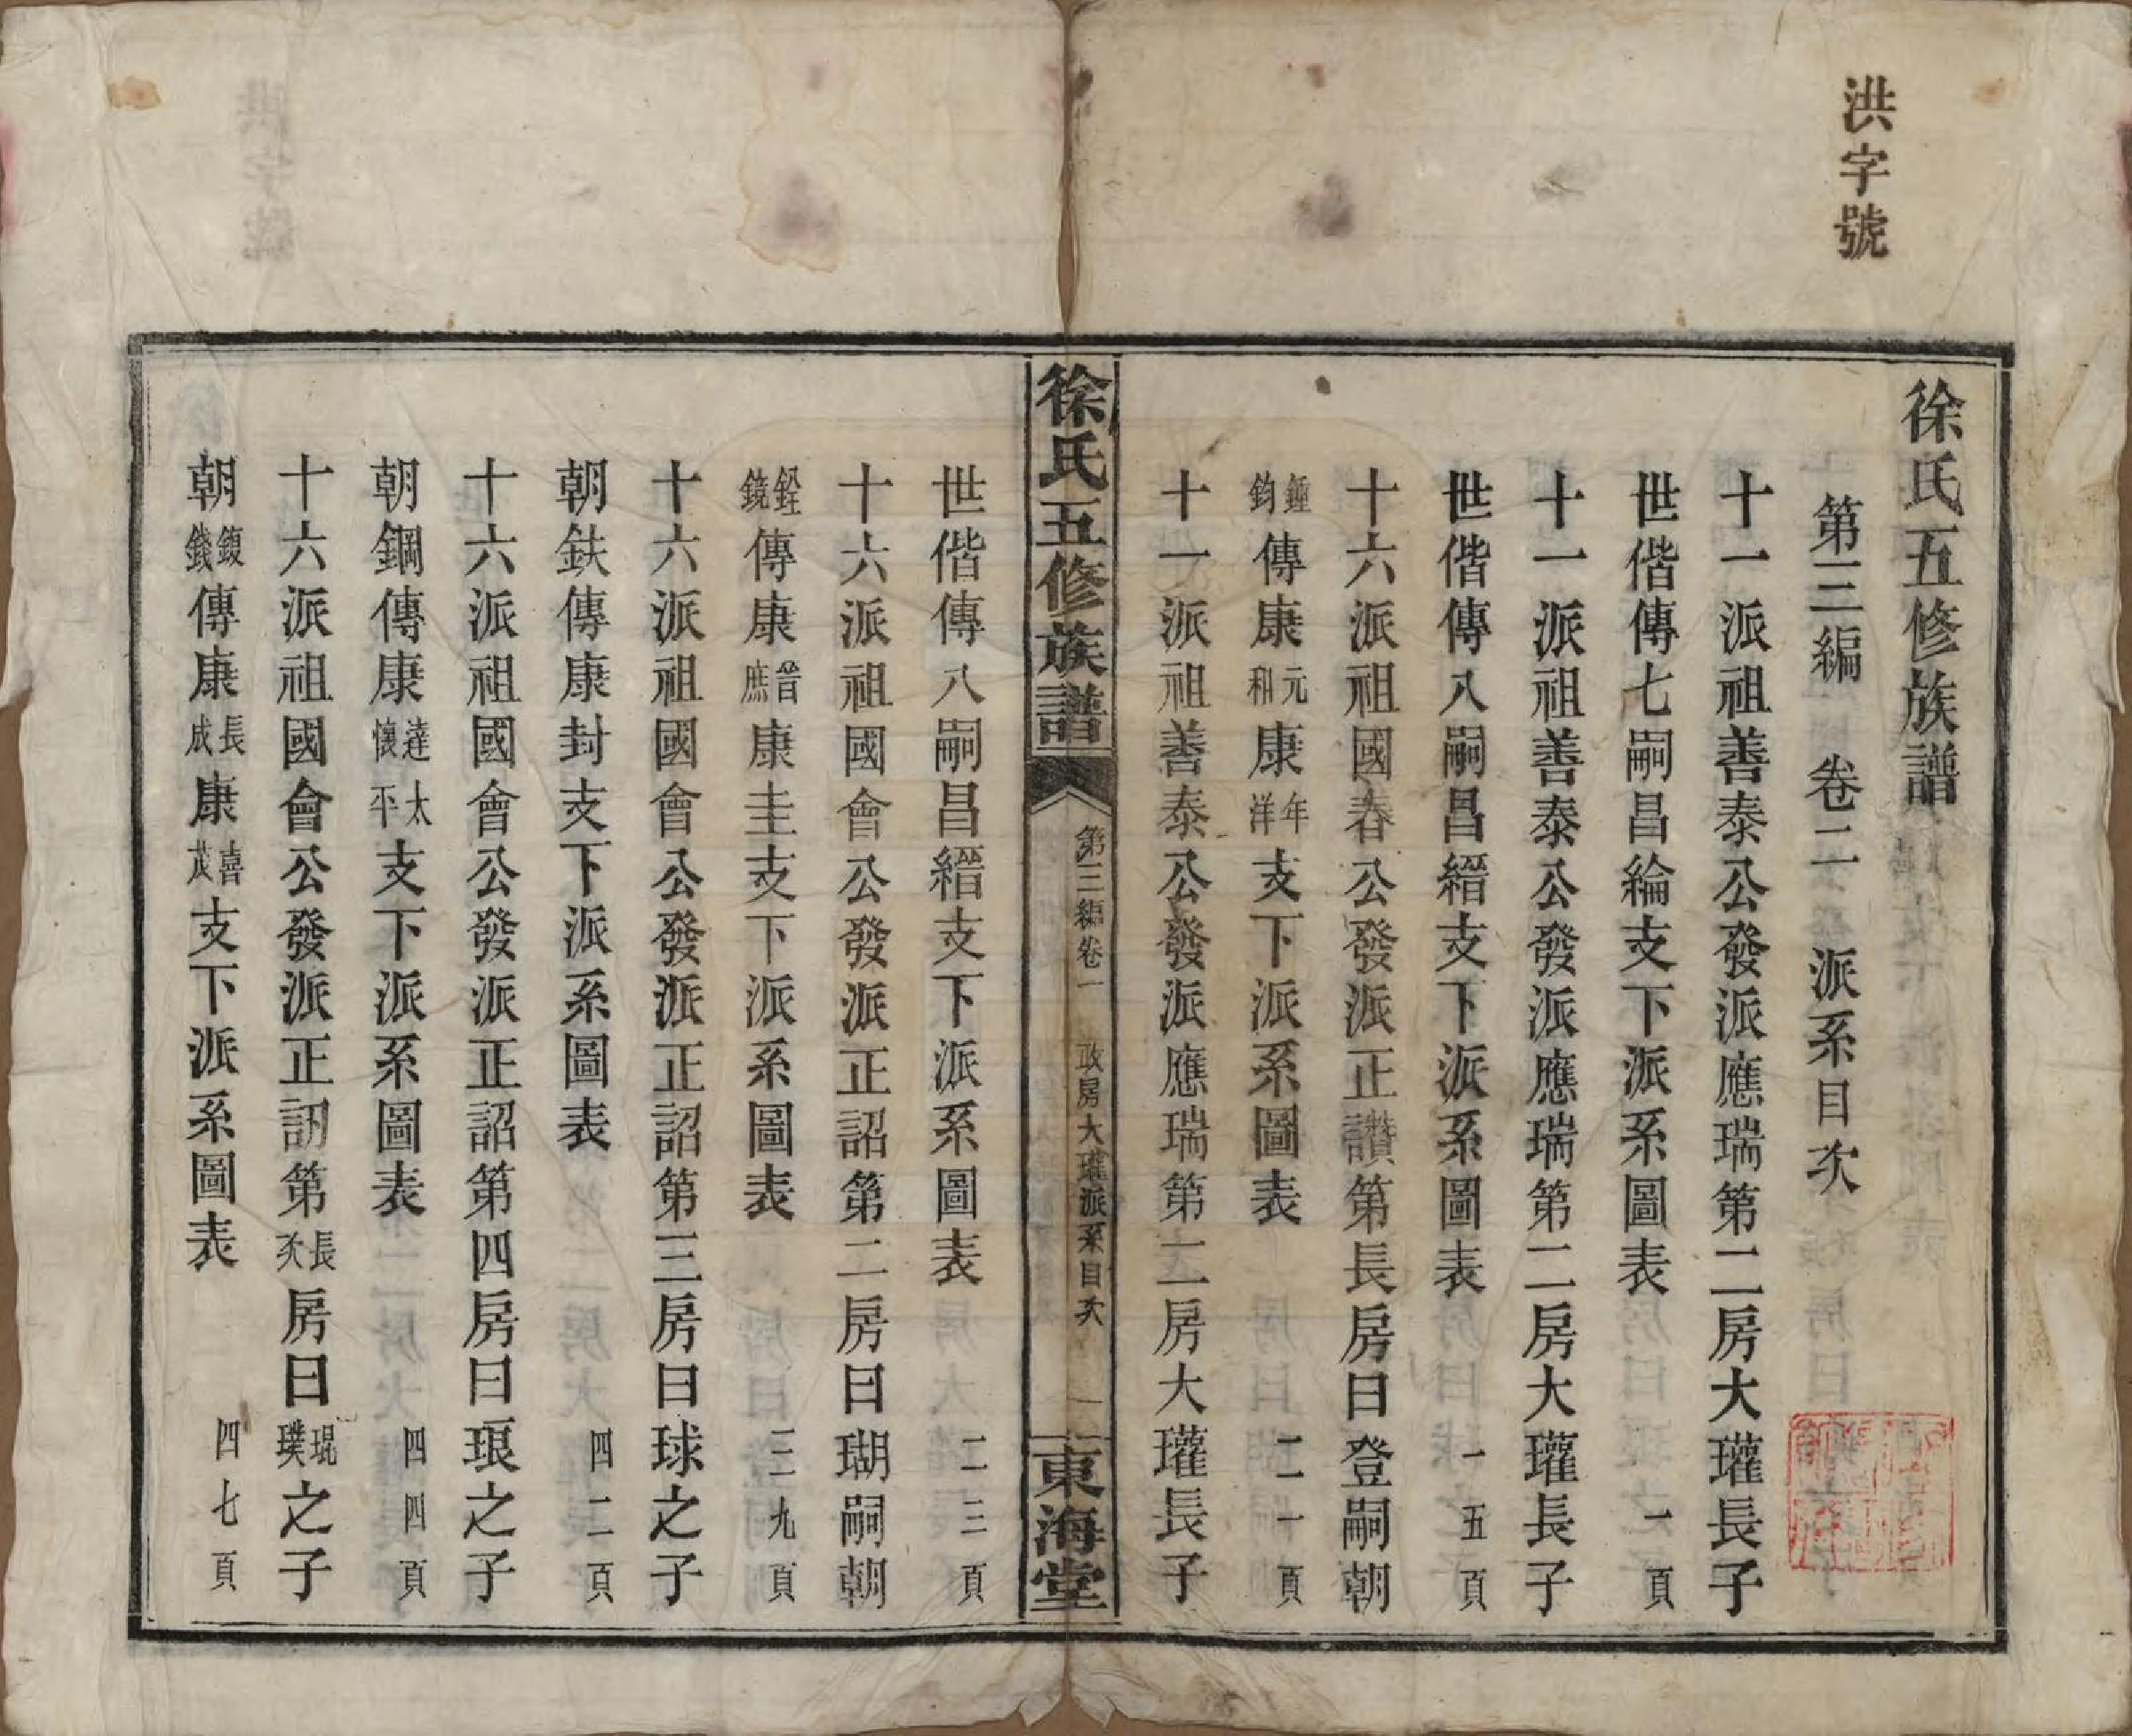 洪字號
徐氏五修族譜
第三編　卷二　派系目次
十一派祖善泰公發派應瑞第二房大瓘長子
世偕傳七嗣昌綸支下派系圖表　一頁
十一派祖善泰公發派應瑞第二房大瓘長子
世偕傳八嗣昌縉支下派系圖表　一五頁
十六派祖國春公發派正讚第長房曰登嗣朝
鍾鈞傳康元和康年洋支下派系圖表　二一頁
十一派祖善泰公發派應瑞第二房大瓘長子
徐氏五修族譜　第三編卷一　政房大瓘派系目次　一　東海堂
世偕傳八嗣昌縉支下派系圖表　二三頁
十六派祖國會公發派正詔第二房曰瑚嗣朝
銓鏡傳康普庶康圭支下派系圖表　三九頁
十六派祖國會公發派正詔第三房曰球之子
朝鈇傳康封支下派系圖表　四二頁
十六派祖國會公發派正詔第四房曰琅之子
朝鋼傳康達懷太平支下派系圖表　四四頁
十六派祖國會公發派正訒第長次房曰琨璞之子
朝鍑錢傳康長成康喜茂支下派系圖表　四七頁